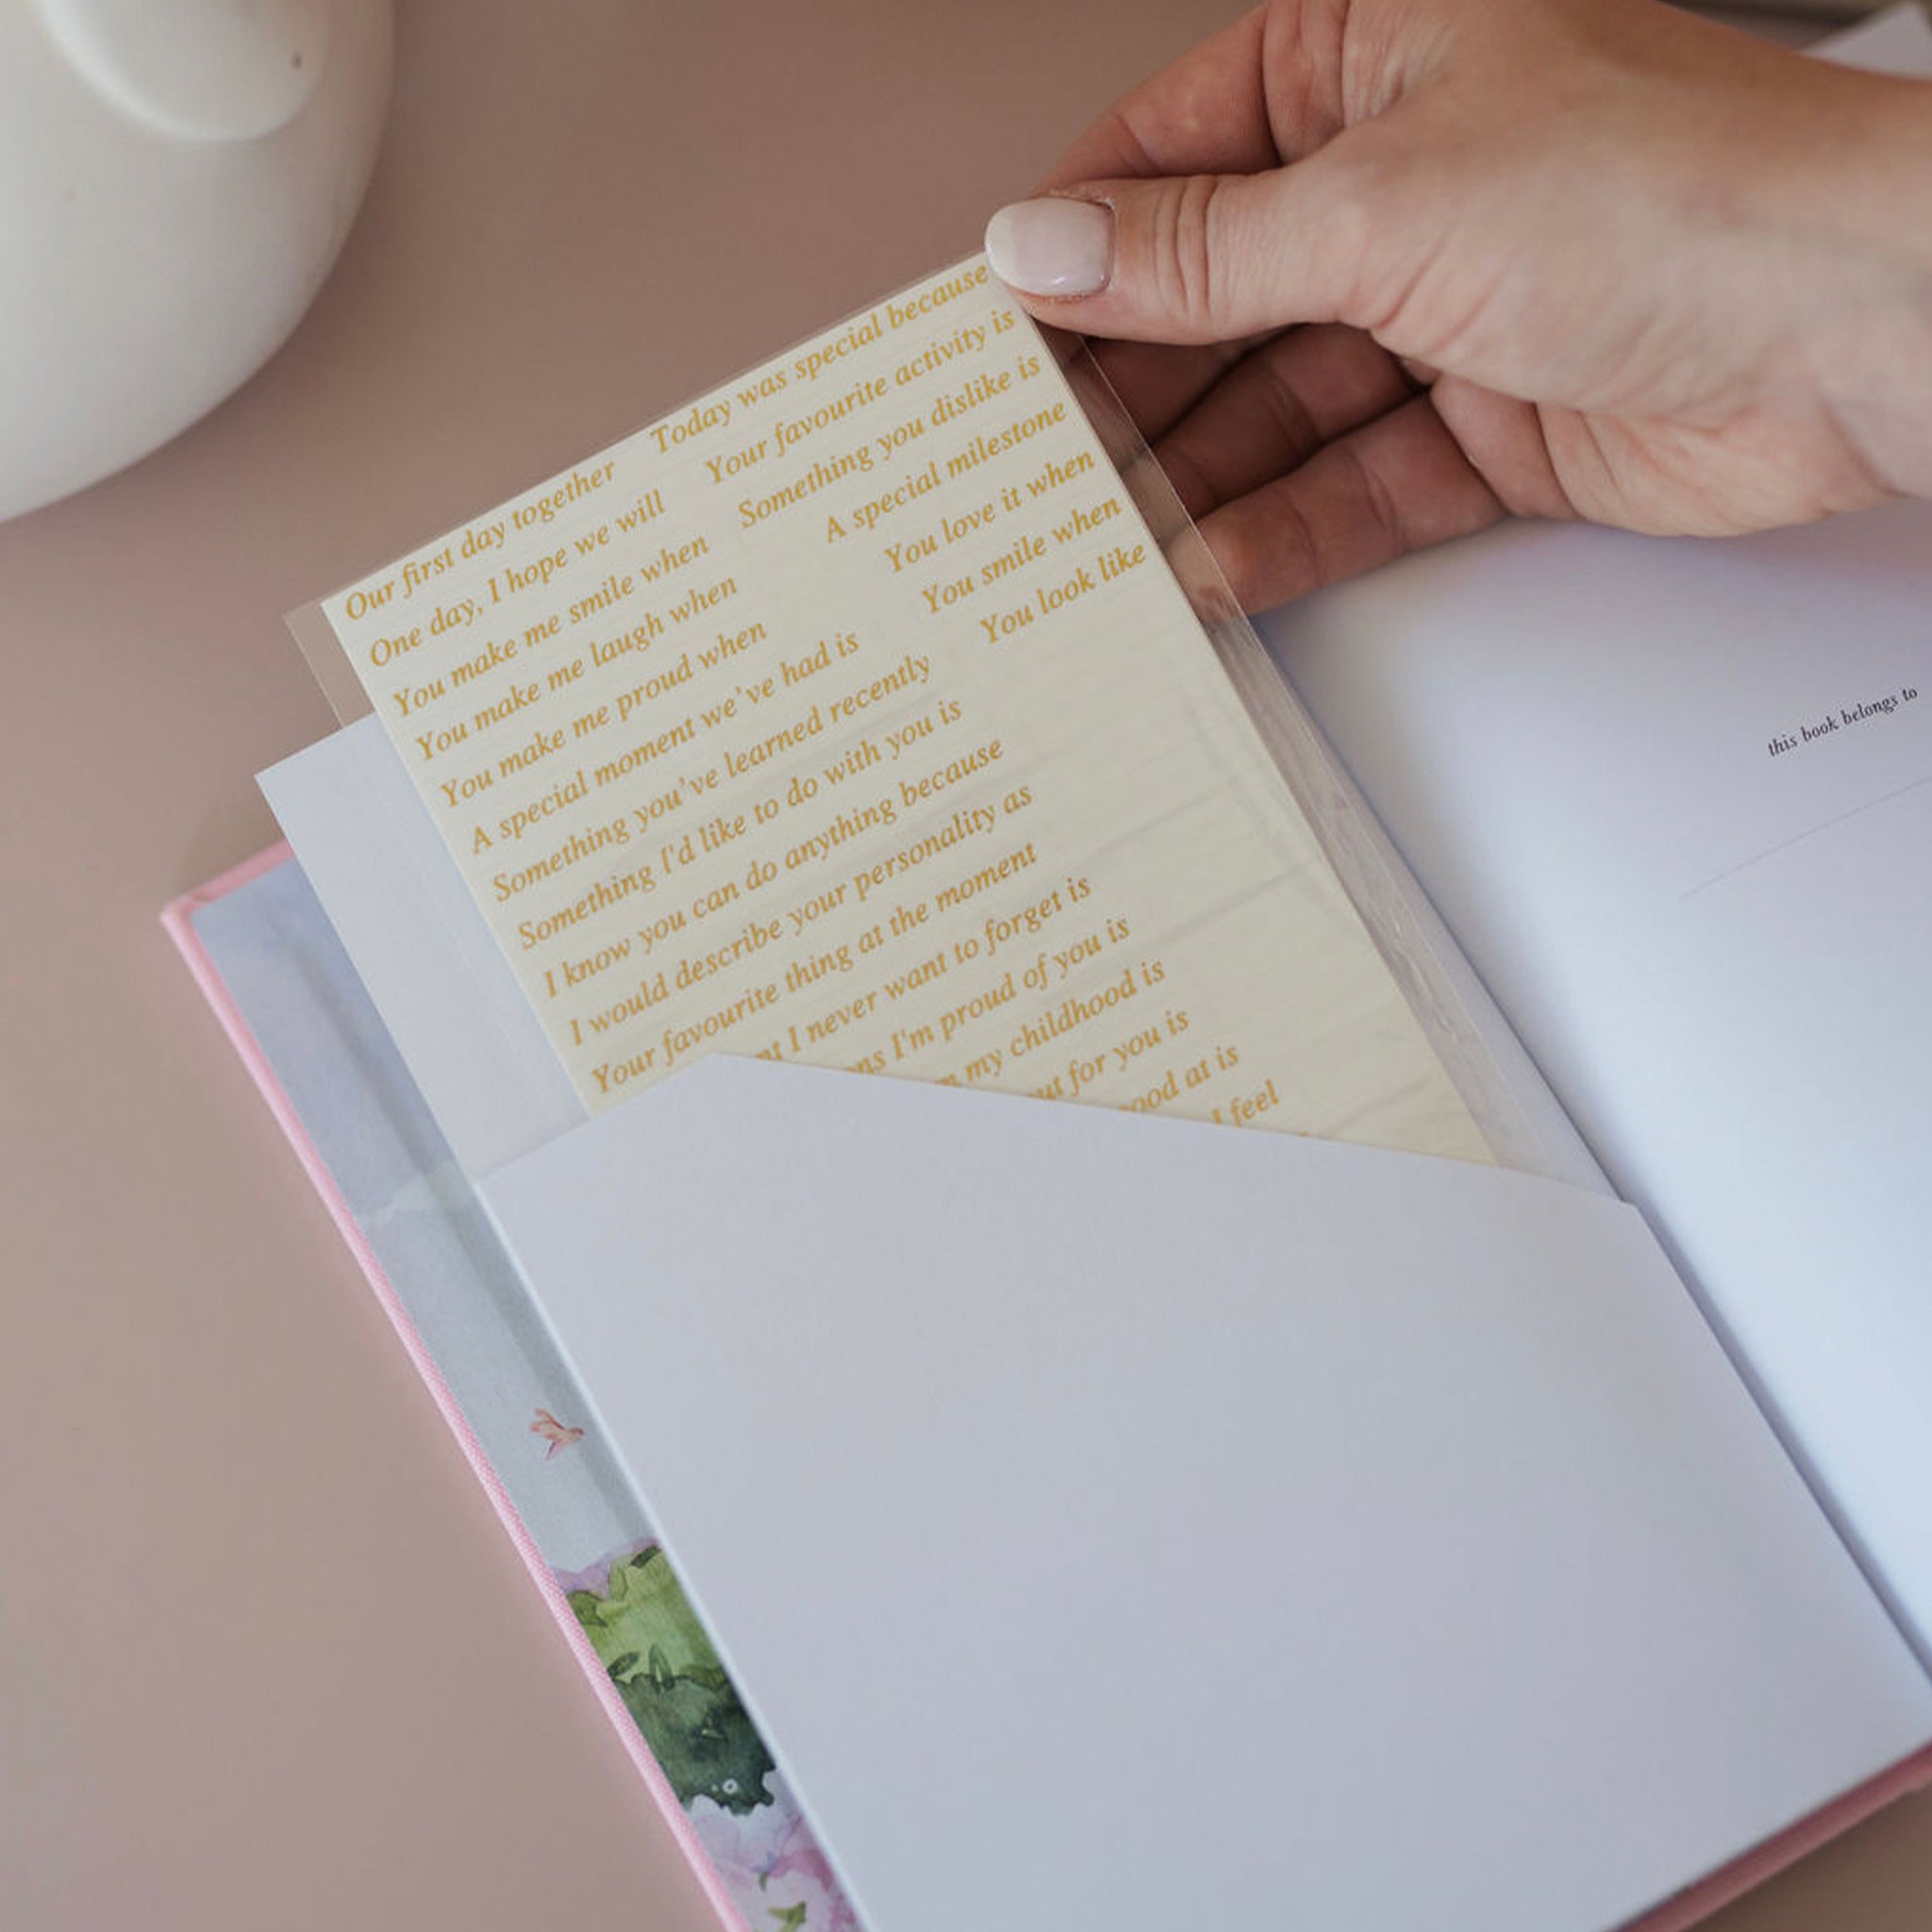 Our first day together
One day, I hope we will
You make me smile when
You make me laugh when
You make me proud when
A special moment we've had is
Something you've learned recently
Something I'd like to do with you is
I know you can do anything because
I would describe your personality as
Your favourite thing at the moment
I never want to forget is
I'm proud of you is
my childhood is
for you is
at is
feel
Today was special because
Your favourite activity is
Something you dislike is
A special milestone
You love it when
You smile when
You look like
this book belongs to